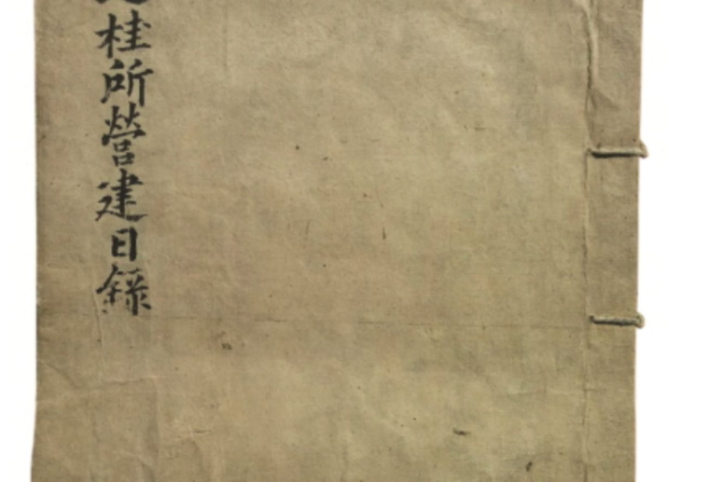 桂所營建日錄